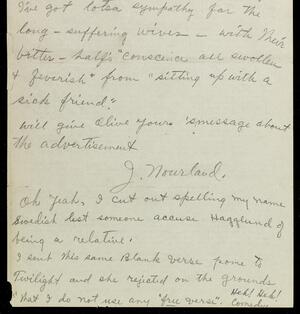 I've got lotsa sympathy for the
long-suffering wives - with their
better-half's "conscience all swollen
& feverish" from "sitting up with a
sick friend."
Will give Olive yours message about
the advertisement
J. Nourland.
Oh yeah, I cut out spelling my name
Swedish lest someone accuse Hagglund of
being a relative.
I sent this same Blank verse pome to
Twilight and she rejectd on the grounds
"that I do not use any "free verse". Heh! Heh!
Comedy